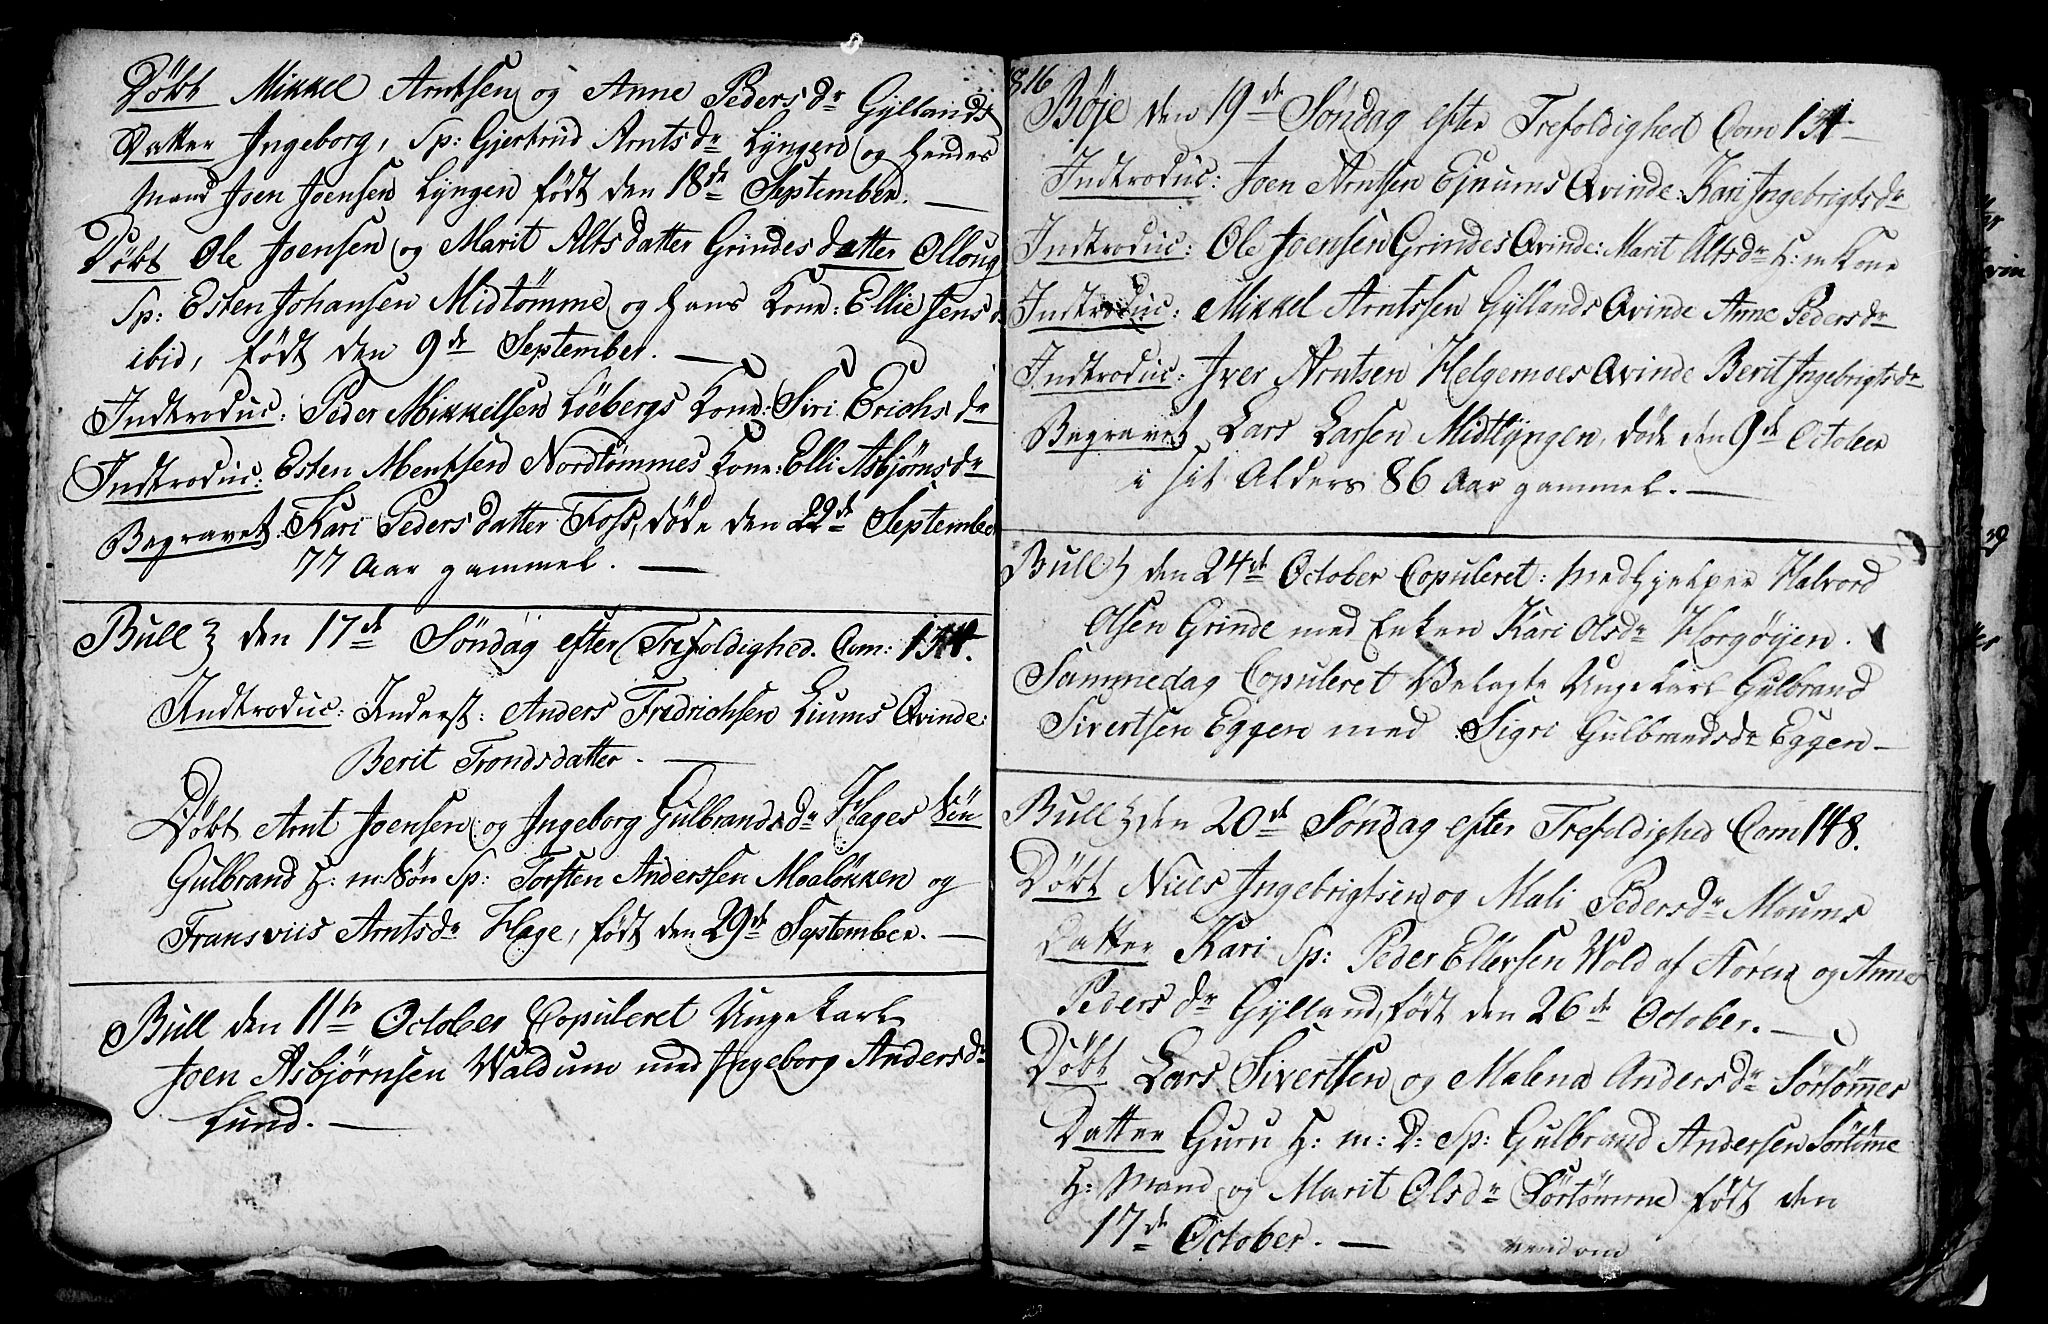 Døbt Mikkel Arntsen og Anne Pedersdr Gyllands
Datter Ingeborg, Sp: Gjertrud Arntsdr Lyngen og hendes
Mand Joen Joensen Lyngen født den 18de September. —
Døbt Ole Joensen og Marit Altsdatter Grindes datter Olloug
Sp: Esten Johansen Midtømme og hans Kone: Ellie Jensd
ibid, født den 9de September. —
Indtroduc: Peder Mikkelsen Löebergs Kone: Siri Erichsdr
Indtroduc: Esten Mentsen Nordtømmes Kone: Elli Asbjørnsdr
Begravet Kari Pedersdatter Foss, døde den 22de September
77 Aar gammel. —
Bull den 17de Søndag efter Trefoldighed. Com:
Indtroduc: Inderst: Anders Fredrichsen Liums Qvinde:
Berit Trondsdatter. —
Døbt Arnt Joensen og Ingeborg Gulbrandsdr Hages Søn
Gulbrand H: m: Søn Sp: Torsten Anderssen Moaløkken og
Arntsdr Hage, født den 29de September. —
Bull den 11te October Copuleret Ungekarl
Joen Asbjørnsen Waldum med Ingeborg Andersdr
Lund. —
1816
Bøje den 19de Søndag efter Trefoldighed Com
Indtroduc: Joen Arntsen Ejnums Qvinde: Kari Ingebrigtsdr
Indtroduc: Ole Joensen Grindes Qvinde: Marit Altsdr H: m Kone
Indtroduc: Mikkel Arntssen Gyllands Qvinde Anne Pedersdr
Indtroduc: Iver Arntsen Helgemoes Qvinde Berit Ingebrigtsdr
Begravet Lars Larsen Midtlyngen, døde den 9de October
i sit Alders 86 Aar gammel. —
Bull den 24de October Copuleret: Medhjelper Halvord
Olsen Grinde med Enken Kari Olsdr Horgøyen.
Sammedag Copuleret Ungekarl Gulbrand
Sivertsen Eggen med Sigri Gulbrandsdr Eggen —
Bull den 20de Søndag efter Trefoldighed Com 148.
Døbt Niels Ingebrigtsen og Mali Pedersdr Moums
Datter Kari Sp: Peder Ellevsen Wold af Støren og Anne
Pedersdr Gylland, født den 26de October. —
Døbt Lars Sivertsen og Malena Andersdr Sørtømmes
Datter Guru H: m: D: Sp: Gulbrand Andersen Sørtømme
H: Mand og Marit Olsdr Sørtømme født den
17de October. —
vend om